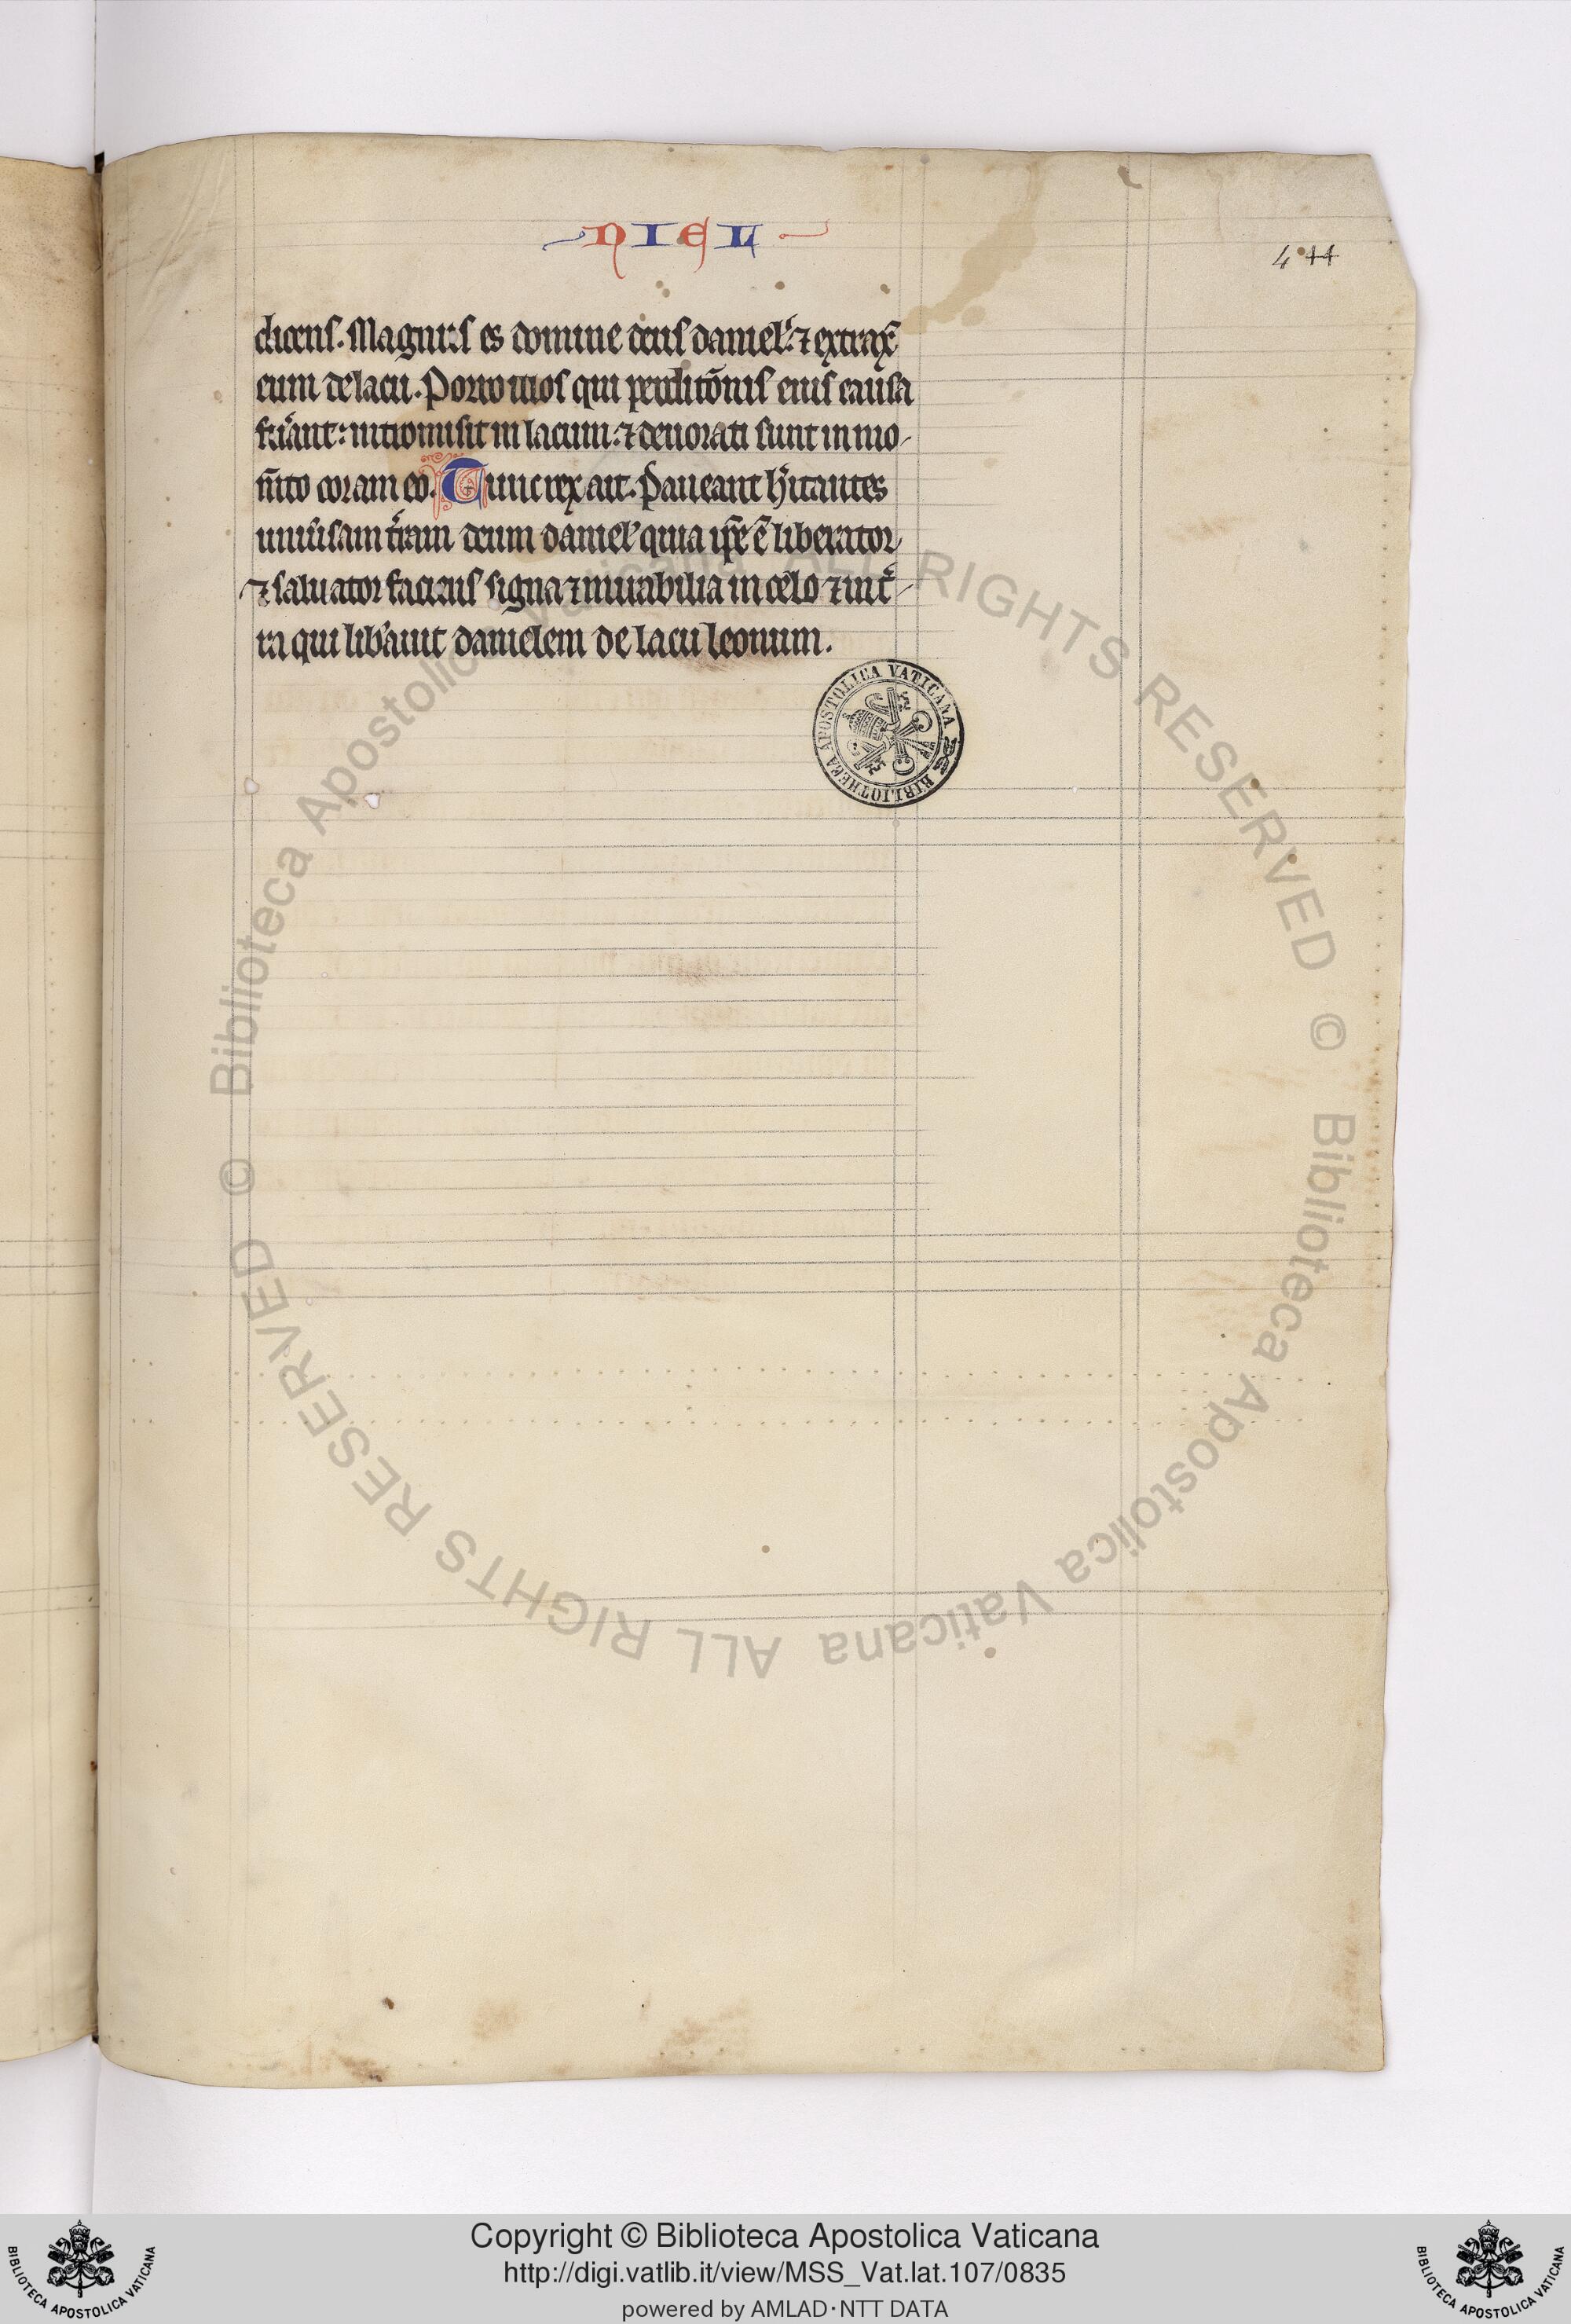 NIEL
4°44
dicens. Magnus es domine deus daniel'. ⁊ extrax̄
eum de lacu. Porro illos qui perditōnis eius causa
fuˀant: intromisit in lacum: ⁊ deuorati sunt in mo-
m̄to coram eo. Tunc rex ait. Paueant hˀitantes
uniuˀsam tˀram deum daniel' quia ip̄e ē liberator
⁊ saluator faciens signa ⁊ mirabilia in celo ⁊ in tˀ-
ra qui libˀauit danielem de lacu leonum.
BIBLIOTHECA APOSTOLICA VATICANA
© Biblioteca Apostolica Vaticana ALL RIGHTS RESERVED
© Biblioteca Apostolica Vaticana ALL RIGHTS RESERVED
Copyright © Biblioteca Apostolica Vaticana
http://digi.vatlib.it/view/MSS_Vat.lat.107/0835
powered by AMLAD·NTT DATA
BIBLIOTECA APOSTOLICA VATICANA
BIBLIOTECA APOSTOLICA VATICANA